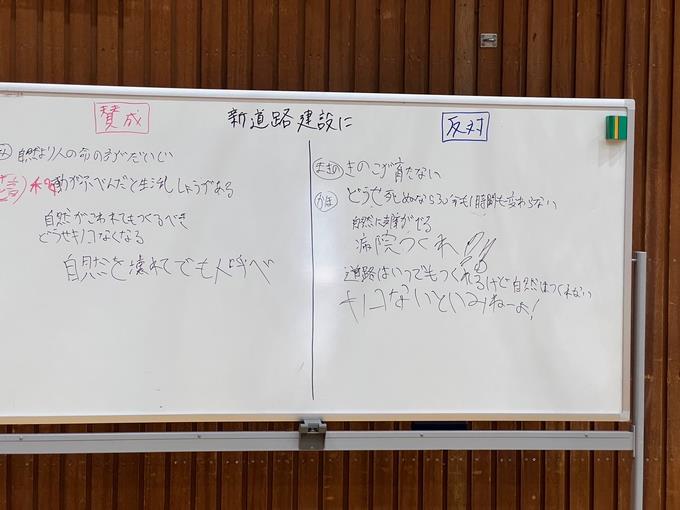 新道路建設に
賛成
自然より人の命の方がだいじ
動がふべんだと生活しししょうがある
自然がこわれてもつくるべき
どうせキノコなくなる
自然を壊れてでも人呼べ
反対
まきの きのこが育たない
どうせ死ぬなら30分も1時間も変わらない
自然に支障がでる
病院つくれ
道路はいつでもつくれるけど自然はつくれない
キノコないといみねーよ!